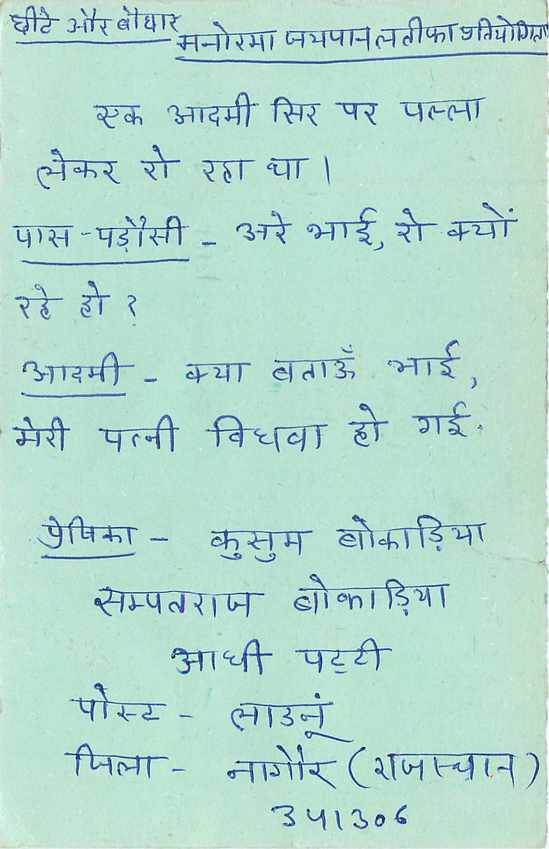 छींटे और बौछार
मनोरमा जयपान लतीफा प्रतियोगिता
एक आदमी सिर पर पल्ला
लेकर रो रहा था।
पास-पड़ौसी - अरे भाई, रो क्यों
रहे हो?
आदमी - क्या बताऊँ भाई,
मेरी पत्नी विधवा हो गई.
प्रेषिका - कुसुम बोकाड़िया
सम्पतराज बोकाड़िया
आधी पट्टी
पोस्ट - लाडनूं
जिला - नागौर (राजस्थान)
341306